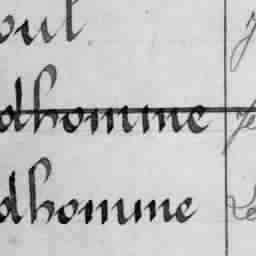 oul
dhomme
dhomme